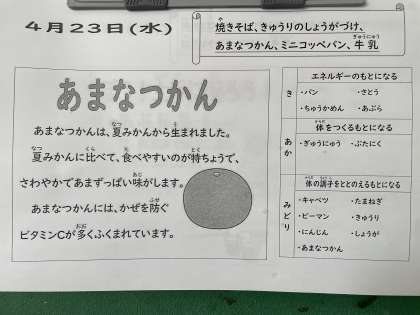 4月23日(水)
焼きそば、きゅうりのしょうがづけ、
あまなつかん、ミニコッペパン、牛乳
あまなつかん
あまなつかんは、夏みかんから生まれました。
夏みかんに比べて、食べやすいのが特ちょうで、
さわやかであまずっぱい味がします。
あまなつかんには、かぜを防ぐ
ビタミンCが多くふくまれています。
き
エネルギーのもとになる
・パン ・さとう
・ちゅうかめん ・あぶら
あか
体をつくるもとになる
・ぎゅうにゅう ・ぶたにく
みどり
体の調子をととのえるもとになる
・キャベツ ・たまねぎ
・ピーマン ・きゅうり
・にんじん ・しょうが
・あまなつかん